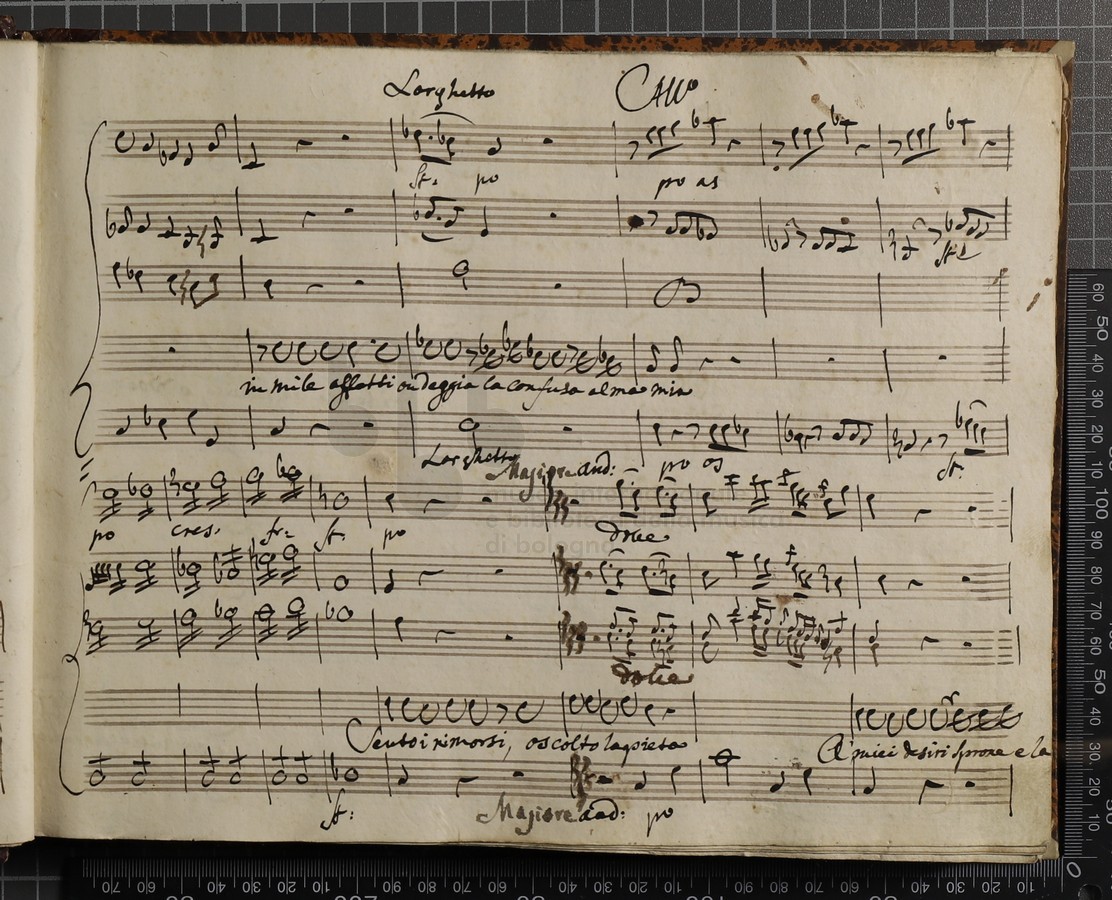 Larghetto Allo
st: po po as
st:
in mile affetti ondeggia la confusa alma mia
Larghetto po as st:
Majiore and:
po cres: fr: st. po dolce
di bologna
dolce
Sento i rimorsi, ascolto la pieta A miei desiri sprone e la
st: Majiore and: po